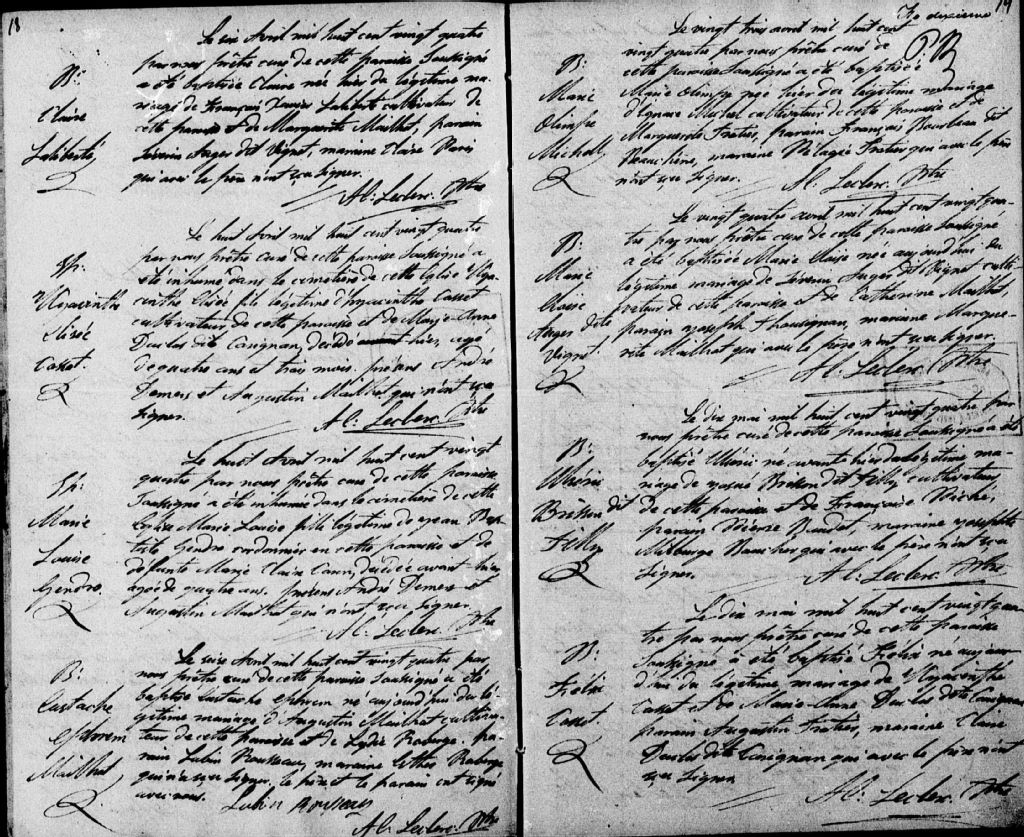 18
Le six Avril mil huit cent vingt quatre
par nous prêtre curé de cette paroisse soussigné
B:
a été baptisée Claire née hier du légitime ma-
Claire
riage de François Xavier Laliberté cultivateur de
cette paroisse et de Marguerite Mailhot, parain
Laliberté,
Séverin Auger dit Vignet, maraine Claire Paris
qui avec le père n'ont sçu signer.
Al: Leclerc. Ptre
Le huit Avril mil huit cent vingt quatre
par nous prêtre curé de cette paroisse soussigné a
Sp:
été inhumé dans le cimetière de cette Eglise Hya-
Hyacinthe
cinthe Elisée fils légitime d'Hyacinthe Casset
Elisée
cultivateur de cette paroisse et de Marie-Anne
Duclos dite Carignan, décédé hier, agé
Casset.
de quatre ans et trois mois. présens André
Demers et Augustin Mailhot qui n'ont sçu
signer.
Al: Leclerc. Ptre
Le huit Avril mil huit cent vingt
quatre par nous prêtre curé de cette paroisse
Sp:
soussigné a été inhumée dans le cimetière de cette
Marie
Eglise Marie Louise fille légitime de Jean Bap-
Louise
tiste Gendro cordonnier en cette paroisse et de
défunte Marie Claire Caron, décédée avant hier,
Gendro.
agée de quatre ans. présens André Demers et
Augustin Mailhot qui n'ont sçu signer.
Al: Leclerc. Ptre
Le seize Avril mil huit cent vingt quatre par
B:
nous prêtre curé de cette paroisse soussigné a été
Eustache
baptisé Eustache Ephrem né aujourd'hui du lé-
gitime mariage d'Augustin Mailhot cultiva-
Ephrem
teur de cette paroisse et de Lydie Roberge. pa-
rain Lubin Rousseau, maraine Esther Roberge
Mailhot,
qui n'a sçu signer, le père et le parain ont signé
avec nous.
Lubin Rousseau
Al: Leclerc. Ptre
19
Fo dixième
P.B
Le vingt trois avril mil huit cent
vingt quatre par nous prêtre curé de
B:
cette paroisse soussigné a été baptisée
Marie
Marie Olimpe née hier du légitime mariage
Olimpe
d'Ignace Michel cultivateur de cette paroisse et de
Marguerite Fratiés, parain François Bourbeau dit
Michel,
Beauchêne, maraine Pélagie Fratiés qui avec le père
n'ont sçu signer.
Al: Leclerc. Ptre
Le vingt quatre avril mil huit cent vingt qua-
B:
tre par nous prêtre curé de cette paroisse soussigné
a été baptisée Marie Elaise née aujourd'hui du
Marie
légitime mariage de Séverin Auger dit Vignet culti-
Elaise
vateur de cette paroisse et de Catherine Mailhot,
Auger dite
parain Joseph Thousignan, maraine Margue-
Vignet.
rite Mailhot qui avec le père n'ont sçu signer.
Al: Leclerc. Ptre
Le dix mai mil huit cent vingt quatre par
nous prêtre curé de cette paroisse soussigné a été
B:
baptisé né avant hier du légitime ma-
riage de Josué Brisson dit Filly cultivateur
Brisson dit
de cette paroisse et de Françoise Miché,
Filly
parain Pierre Baudet, maraine Josephte
qui avec le père n'ont sçu
signer.
Al: Leclerc. Ptre
Le dix mai mil huit cent vingt qua-
tre par nous prêtre curé de cette paroisse
B:
soussigné a été baptisé Félix né aujour-
Félix
d'hui du légitime mariage de Hyacinthe
Casset.
Casset et de Marie-Anne Duclos dite Carignan
parain Augustin Fratiés, maraine Claire
Duclos dite Carignan qui avec le père n'ont
sçu signer.
Al: Leclerc. Ptre